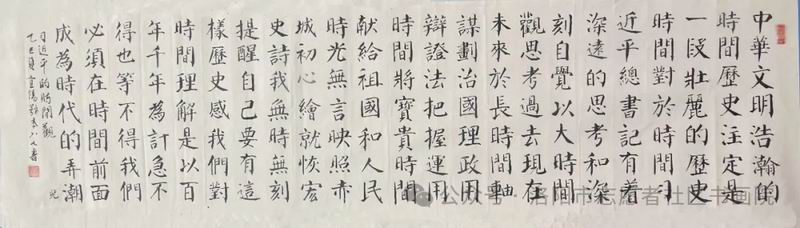 中華文明浩瀚的
時間歷史注定是
一段壯麗的歷史
時間對於時間习
近平總書記有着
深遠的思考和深
刻自覺以大時間
觀思考過去現在
未來於長時間軸
謀劃治國理政用
辯證法把握運用
時間將寶貴時間
献給祖國和人民
時光無言映照赤
城初心繪就恢宏
史詩我無時無刻
提醒自己要有這
樣歷史感我們對
時間理解是以百
年千年為計急不
得也等不得我們
必須在時間前面
成為時代的弄潮
兒
习近平的時間觀
乙巳夏宜陽
公众号 · 洛阳市志愿者社区书画院